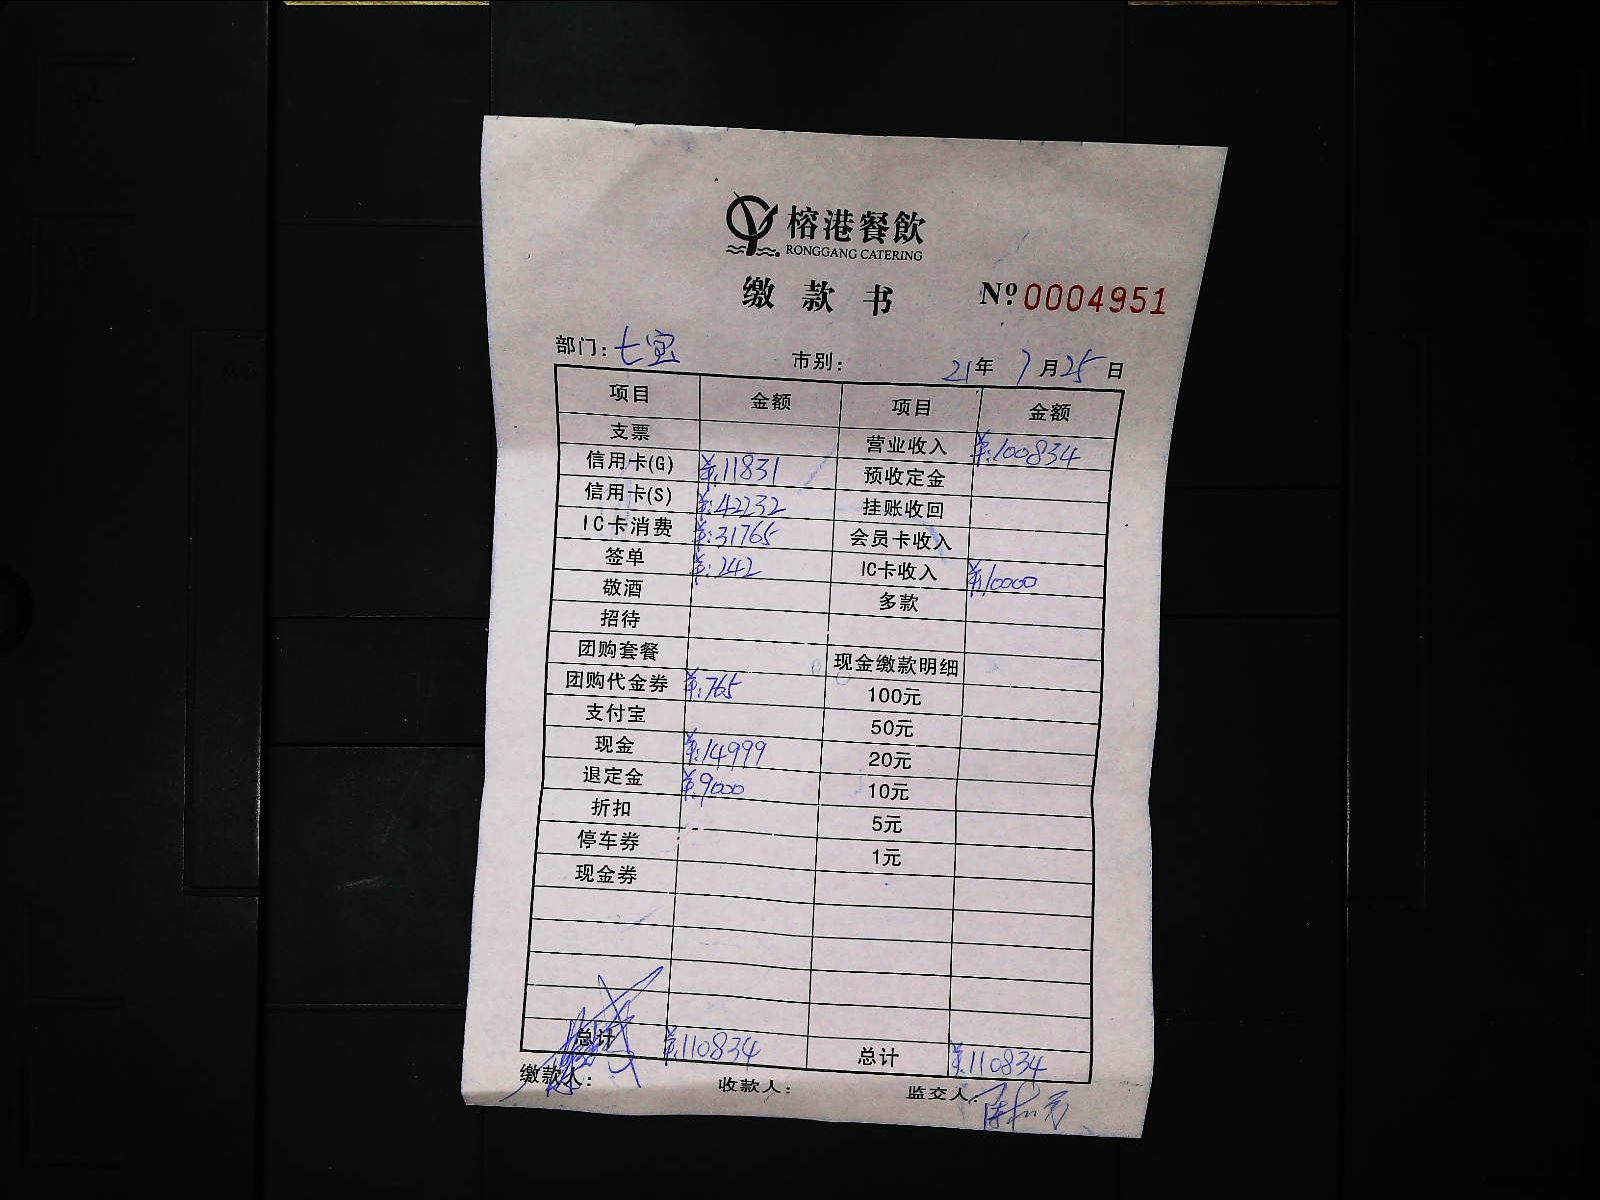 榕港餐飲
RONGGANG CATERING
缴款书 Nº 0004951
部门: 七宝 市别: 21年 7月25日
项目 金额 项目 金额
支票 营业收入 ¥:100834
信用卡(G) ¥:11831 预收定金
信用卡(S) ¥:42232 挂账收回
IC卡消费 ¥:31765 会员卡收入
签单 ¥:242 IC卡收入 ¥:10000
敬酒 多款
招待
团购套餐 现金缴款明细
团购代金券 ¥:765 100元
支付宝 50元
现金 ¥:14999 20元
退定金 ¥:9000 10元
折扣 5元
停车券 1元
现金券
总计 ¥:110834 总计 ¥:110834
缴款人: 收款人: 监交人: